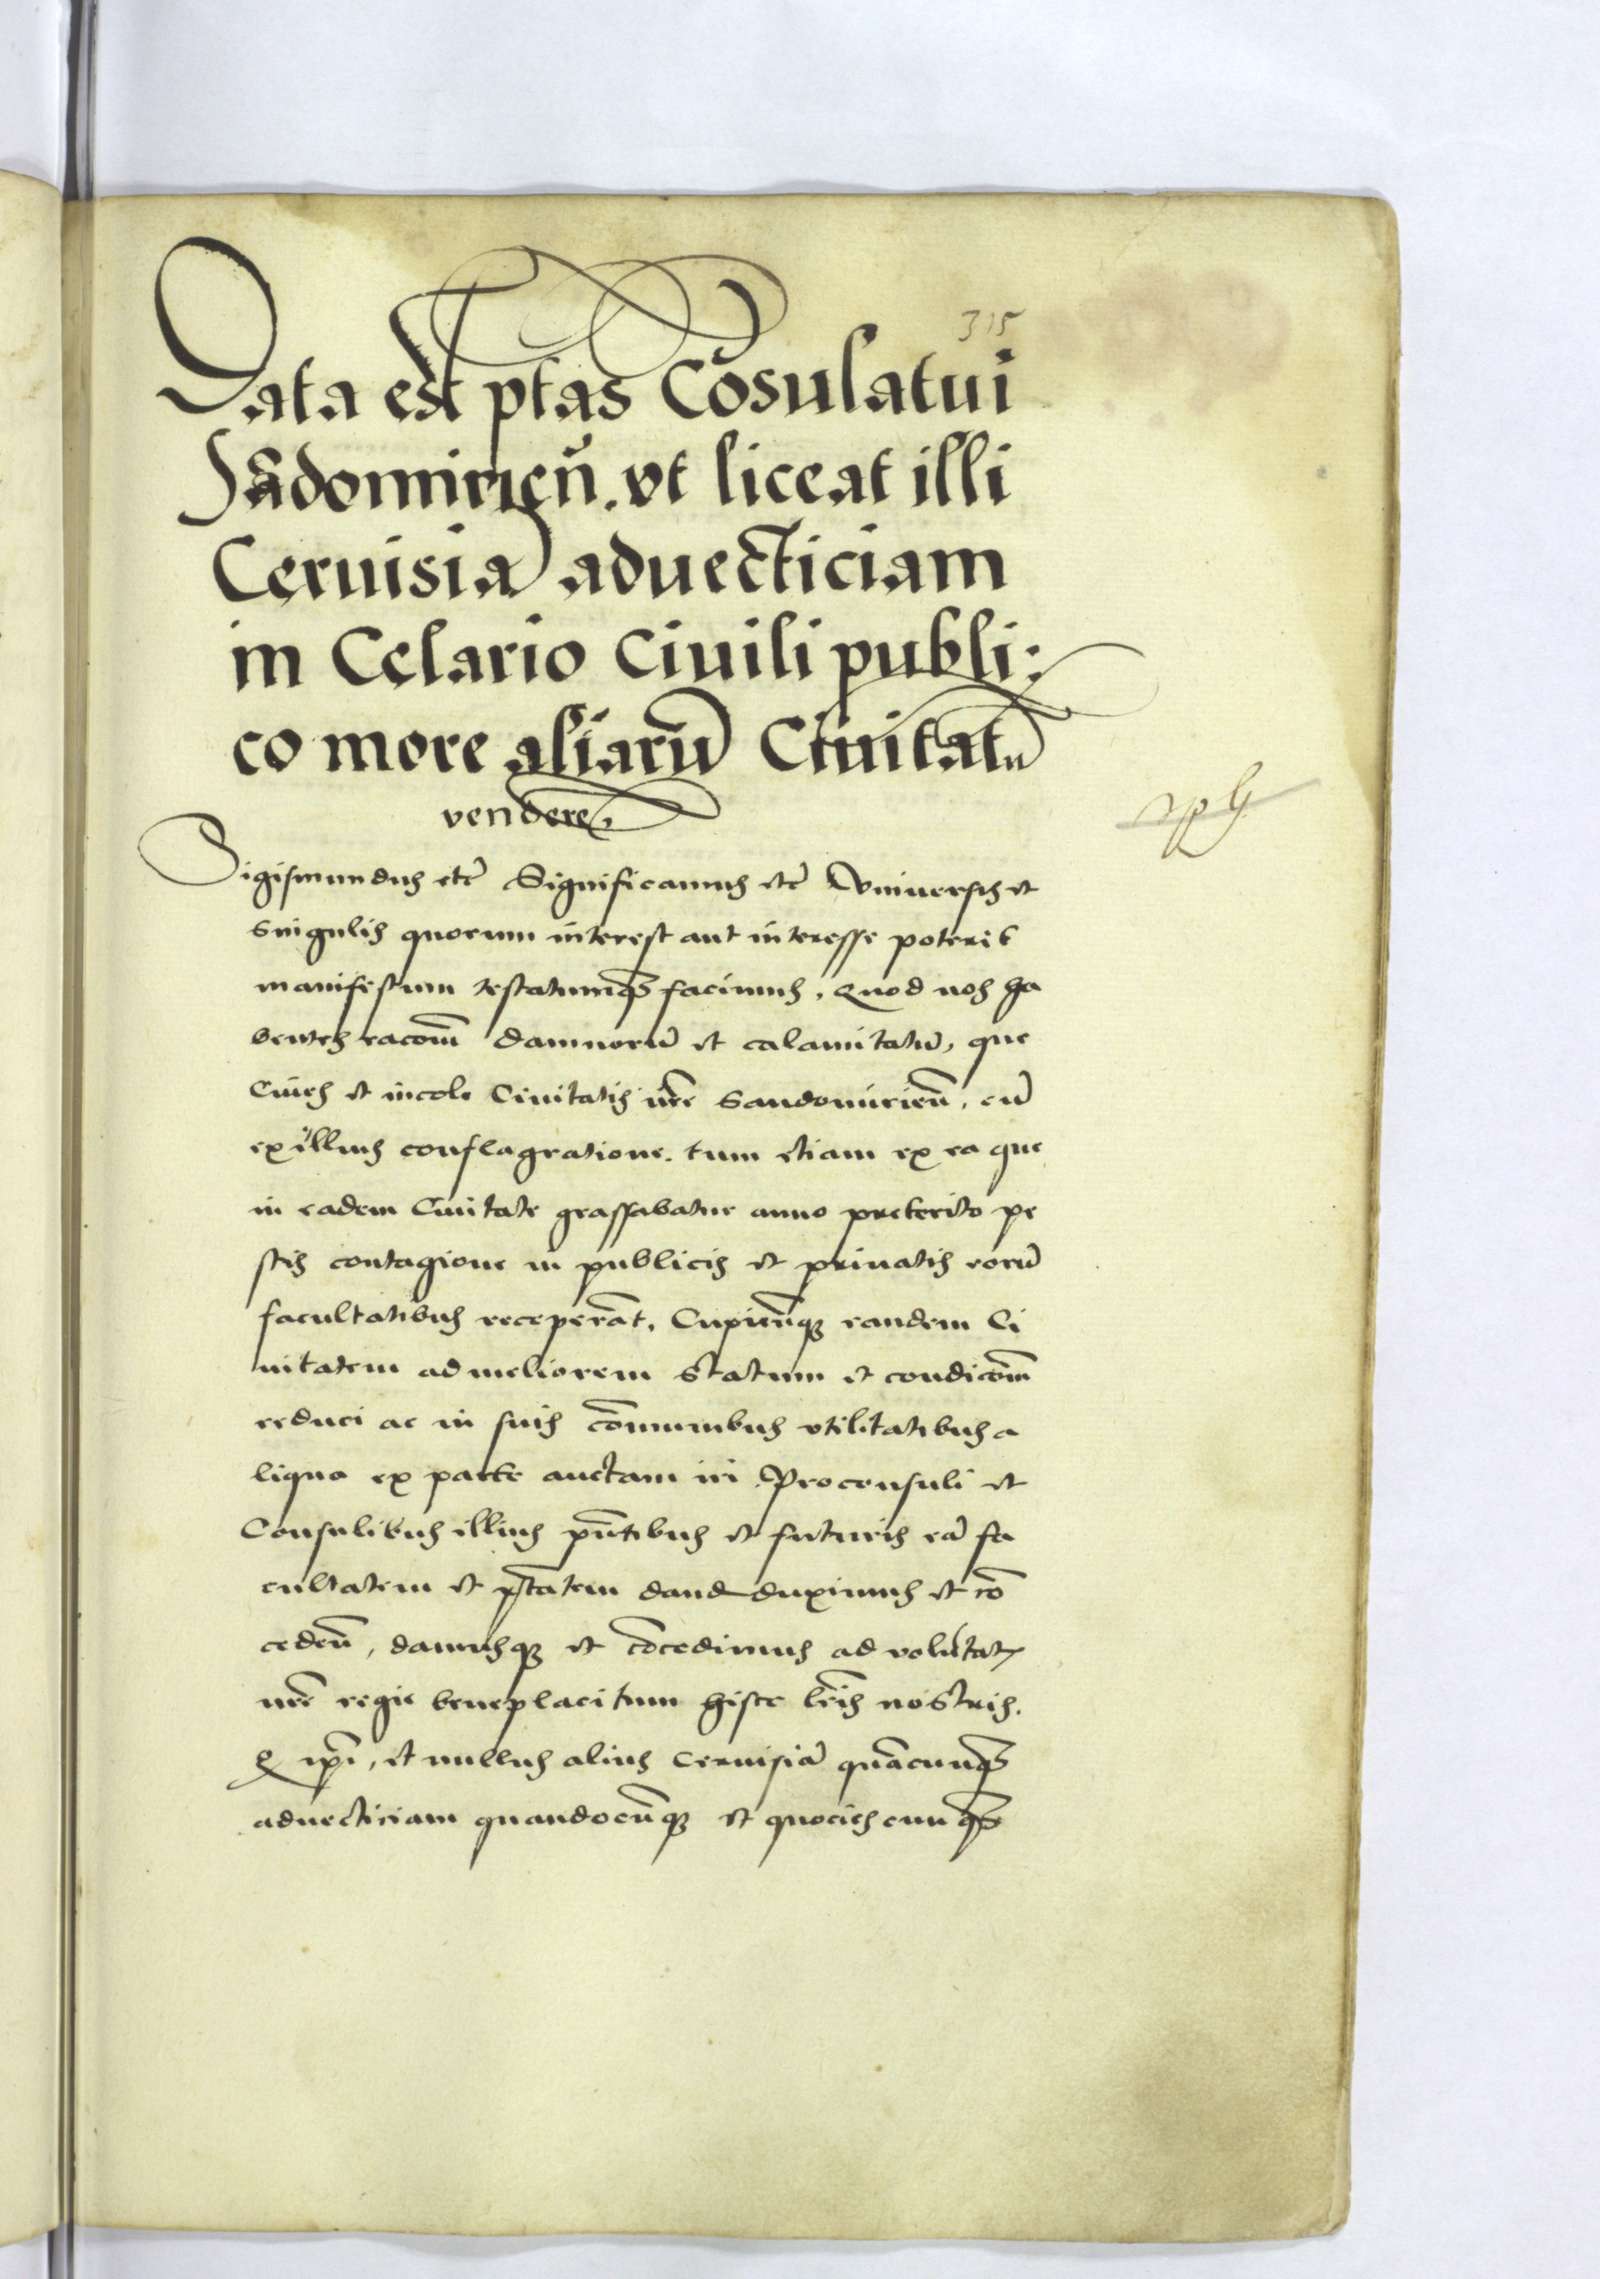 315
Data est ptãs Cõsulatui
Sãdomirień. vt liceat illi
Ceruisiã aduecticiam
in Cęlario Ciuili publi:
co more aliarũ Ciuitatũ
vendere.
Sigismundus etc̃ Significamus etc̃ Vniuersis et
singulis quorum interest aut interesse poterit
manifestum testatumq̃ facimus, Quod nos ha
bentes racoñm damnorũ et calamitatũ, que
Ciues et incole Ciuitatis nr̃e Sandomirień, cũ
ex illius conflagratione. tum etiam ex ea que
in eadem Ciuitate grassabatur anno preterito pe
stis contagione in publicis et priuatis eorũ
facultatibus receperãt, Cupieñq; eandem Ci
uitatem ad meliorem statum et condicoñm
reduci ac in suis cõmunibus vtilitatibus a
liqua ex parte auctam iri Proconsuli et
Consulibus illius pñtibus et futuris eã fa
cultatem et ptãtem dand duximus et cõ
cedeñ, damusq; et cõcedimus ad voluntat
nr̃e regie beneplacitum hisce lr̃is nostris.
Q ipĩ, et nullus alius Ceruisiã quãcunq̃
aduecticiam quandocũq; et quocies cunq̃